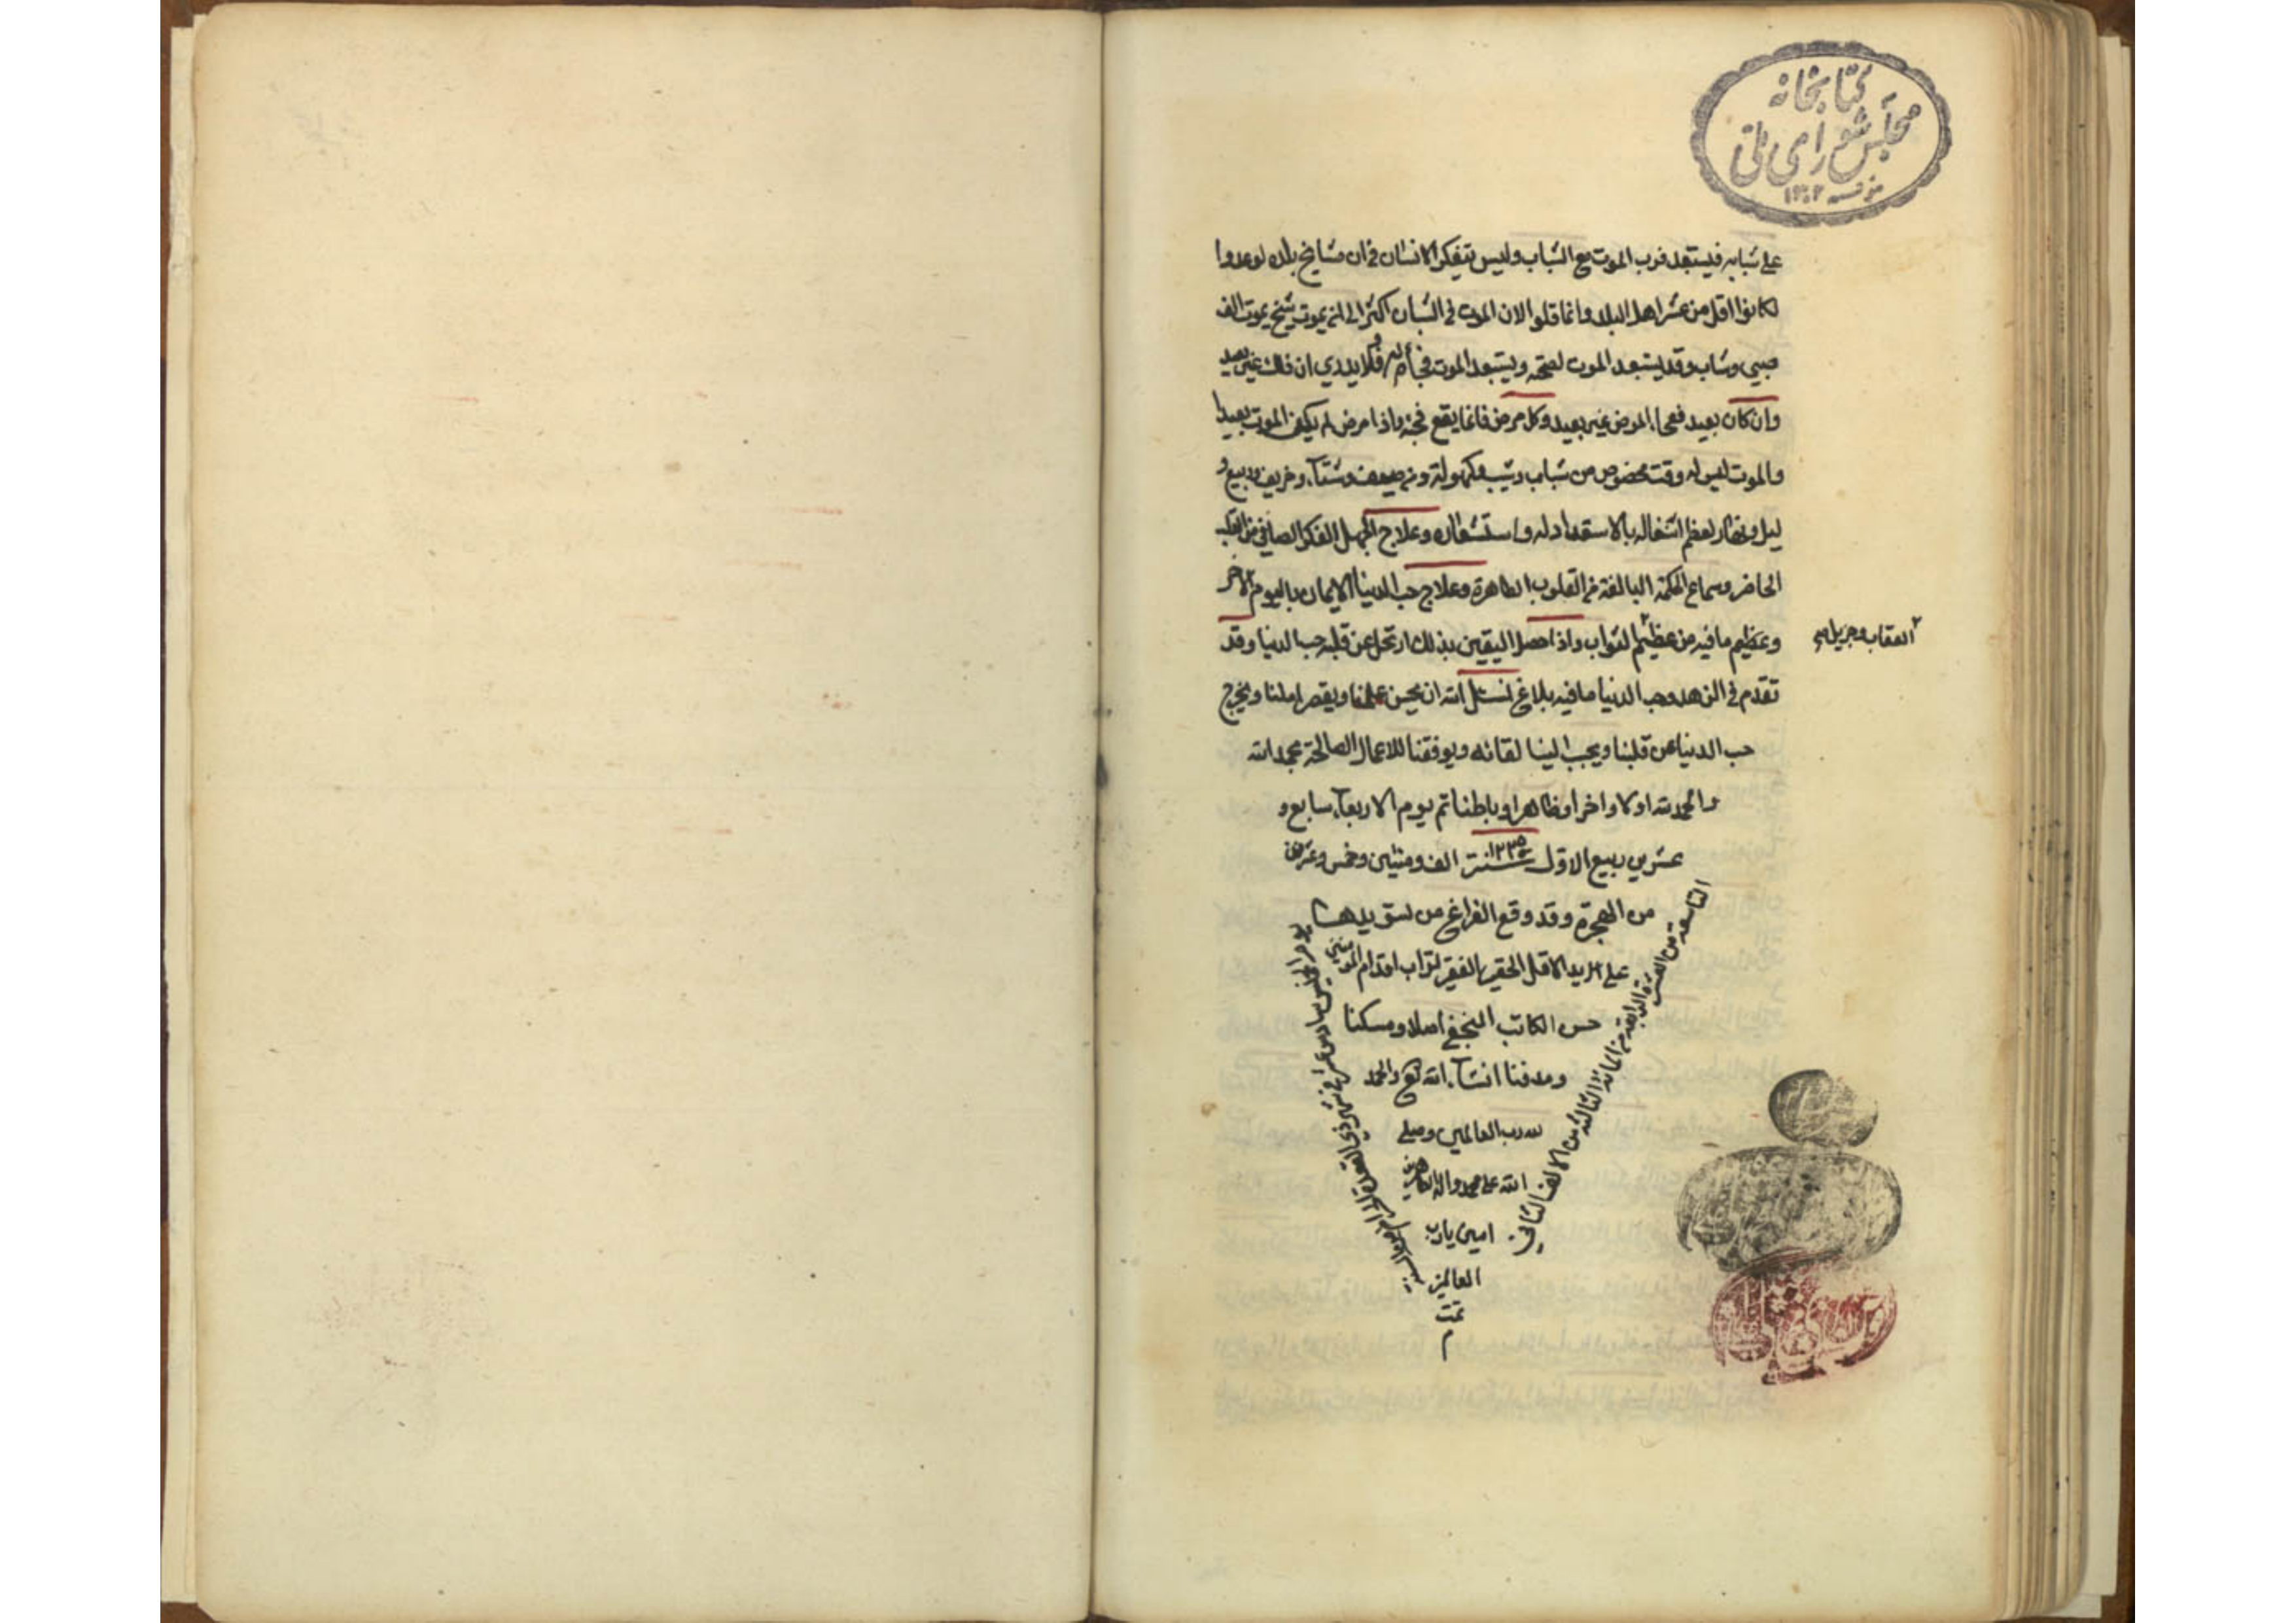 كتابخانه
مجلس شورای ملی
١٣٠٢
على شبابه فيستبعد قرب الموت مع الشباب وليس يتفكر الانسان في ان مشايخ بلده لو عدوا
لكانوا اقل من عشر اهل البلد وانما قلوا لان الموت في الشباب اكثر الى ان يموت شيخ يموت الف
صبي وشاب وقد يستبعد الموت لصحته ويستبعد الموت فجأة ولا يدري ان ذلك غير بعيد
وان كان بعيد فجأ المرض غير بعيد وكل مرض فانما يقع فجئه واذا مرض لم يكن الموت بعيدا
والموت ليس له وقت مخصوص من شباب وشيب وكهولة ومن صيف وشتاء وخريف وربيع و
ليل ونهار لعظم اشتغاله بالاستعداد له واستشعاره وعلاج الجهل الفكر الصافي من القلب
الحاضر وسماع الحكمة البالغة من القلوب الطاهرة وعلاج حب الدنيا الايمان باليوم الاخر
وعظيم ما فيه من عظيم الثواب واذا حصل اليقين بذلك ارتحل عن قلبه حب الدنيا وقد
العقاب وجزيل
تقدم في الزهد وحب الدنيا ما فيه بلاغ نسئل الله ان يحسن عملنا ويقصر املنا ويخرج
حب الدنيا عن قلبنا ويحبب الينا لقائه ويوفقنا للاعمال الصالحة بحمد الله
والحمد لله اولا واخرا وظاهرا وباطنا تم يوم الاربعاء سابع و
عشرين ربيع الاول سنة ١٢٣٥ الف ومئتين وخمس وعشرين
من الهجرة وقد وقع الفراغ من تسويدها
على اليد الاقل الحقير الفقير تراب اقدام المؤمنين
حسن الكاتب النجفي اصلا ومسكنا
ومدفنا انشاء الله تع والحمد
لله رب العالمين وصلى
الله على محمد واله الطاهرين
امين يا رب
العالمين
تمت
م
يوم الخميس سادس عشر في شهر ذي القعدة
التاسعة من العشرة الرابعة من المائة الثالثة من الالف الثاني